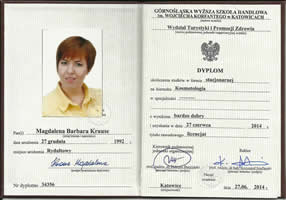 Pan(i) Magdalena Barbara Krause
data urodzenia 27 grudnia 1992 r.
miejsce urodzenia Rydułtowy
Nr dyplomu 34356
GÓRNOŚLĄSKA WYŻSZA SZKOŁA HANDLOWA
im. WOJCIECHA KORFANTEGO w KATOWICACH
Wydział Turystyki i Promocji Zdrowia
DYPLOM
ukończenia studiów w formie stacjonarnej
na kierunku Kosmetologia
w specjalności
z wynikiem bardzo dobry
i uzyskania w dniu 27 czerwca 2014 r.
tytułu zawodowego licencjat
Rektor
Katowice 27.06. 2014 r.